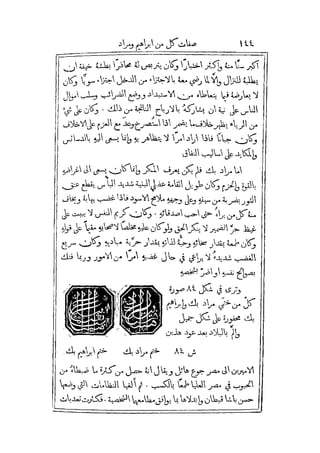 ١٤٤ صفات كل من ابراهيم ومراد
اكبر سنًا منه واكثر اختبارًا وكان يتربص له محاذرًا بطشه خيفة ان
يطلبه للنزال والا لما رضي معه بالاجتزاء من الدخل اجتزاء سويًا وكان
لا يعارضه فيما يتعاطاه من الاستبداد ووضع الضرائب وسلب اموال
الناس على نية ان يشاركه بالارباح الناتجة من ذلك . وكان على شيء
من الرياء يظهر خلاف ما يضمر اذا استُصرخ وعد مع العزم على الاخلاف
وكان جبانًا فاذا اراد امرًا لا يتظاهر به وانما يسعى اليه بالدسائس
والمكايد على اساليب النفاق
اما مراد بك فلم يكن يعرف المكر وانما كان يسعى الى اغراضه
بالقوة والحزم وكان طويل القامة عضلي البنية شديد البأس يقطع عنق
الثور بضربة من سيفه وعلى وجهه ملامح الاسود فاذا غضب يهابه ويخاف
منه كل من يراه حتى احب اصدقائه . وكان كريم النفس لا يبيت على
غيظ حرّ الضمير لا ينكر الحق ولو كان عليه مخلصًا لاصحابه مقيمًا على قوله
وكان طمعه بمقدار سخائه وحبه لذاته بمقدار حرية مباديه وكان سريع
الغضب شديده لا يراعي في حال غضبه امرًا من الامور وربما فتك
بصوالح نفسه او اضرّ بشخصه
وترى في شكل ٨٤ صورة
كل من ختمي مراد بك وابراهيم
بك محفورة على شكل جميل
والمّ بالبلاد بعد عود هذين
ش ٨٤ ختم مراد بك ختم ابراهيم بك
الاميرين الى مصر جوع هائل ويقال انه حصل من كثرة ما ضبطاه من
الحبوب في مصر العليا طمعًا بالكسب . ثم ألغيا النظامات التي وضعها
حسن باشا قبطان وابدلاها بما يوافق مطامعهما الشخصية . فكثرت تعديات